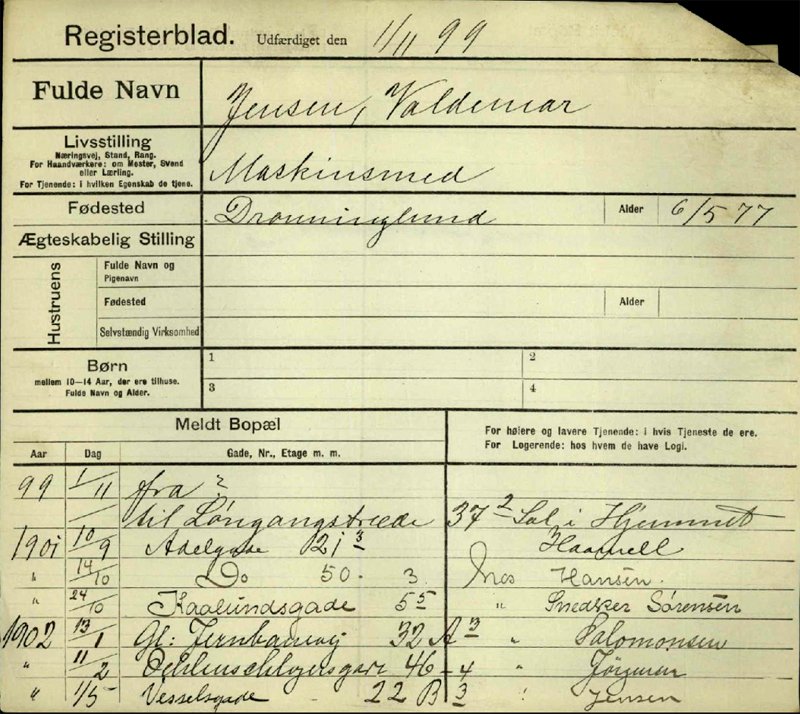 Registerblad. Udfærdiget den 1/11 99
Fulde Navn Jensen, Valdemar
Livsstilling
Næringsvej, Stand, Rang.
For Haandværkere: om Mester, Svend
eller Lærling.
For Tjenende: i hvilken Egenskab de tjene.
Maskinsmed
Fødested Dronninglund Alder 6/5 77
Ægteskabelig Stilling
Hustruens
Fulde Navn og
Pigenavn
Fødested Alder
Selvstændig Virksomhed
Børn
mellem 10–14 Aar, der ere tilhuse.
Fulde Navn og Alder.
1 2
3 4
Meldt Bopæl
For høiere og lavere Tjenende: i hvis Tjeneste de ere.
For Logerende: hos hvem de have Logi.
Aar Dag Gade, Nr., Etage m. m.
99 1/11 fra ?
til Løngangstræde 37 2 Sal i Hjemmet
1901 10/9 Adelgade 21 3
" 14/10 Do 50. 3 hos Hansen.
" 24/10 Kaalundsgade 5 5 " Snedker Sørensen
1902 13/1 Gl: Jernbanevej 32 A 3 " Salomonsen
" 11/2 Oehlenschlægersgade 46 4 "
" 1/5 Vesselsgade 22 B 3 " Jensen